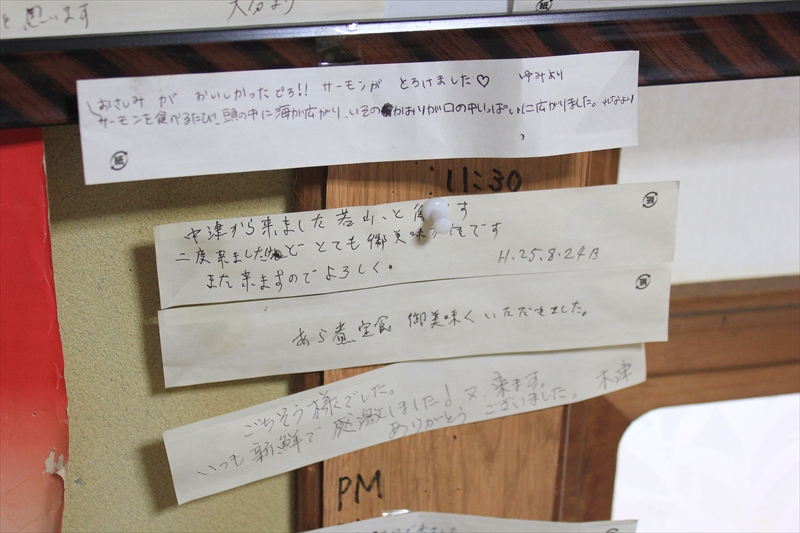 と思います 大分より
おさしみ が おいしかったどろ!! サーモンが とろけました♡ ゆみより
サーモンを食べるたび、頭の中に海が広がり、いその かおりが口の中いっぱいに広がりました。
11:30
中津から来ました 若山、と
二度来ました けど とても 御美味 です
また来ますのでよろしく。 H.25.8.24日
あら煮定食 御美味くいただきました。
ごちそう様でした。
いつも新鮮で感激しました! 又、来ます。 木津
ありがとうございました。
PM